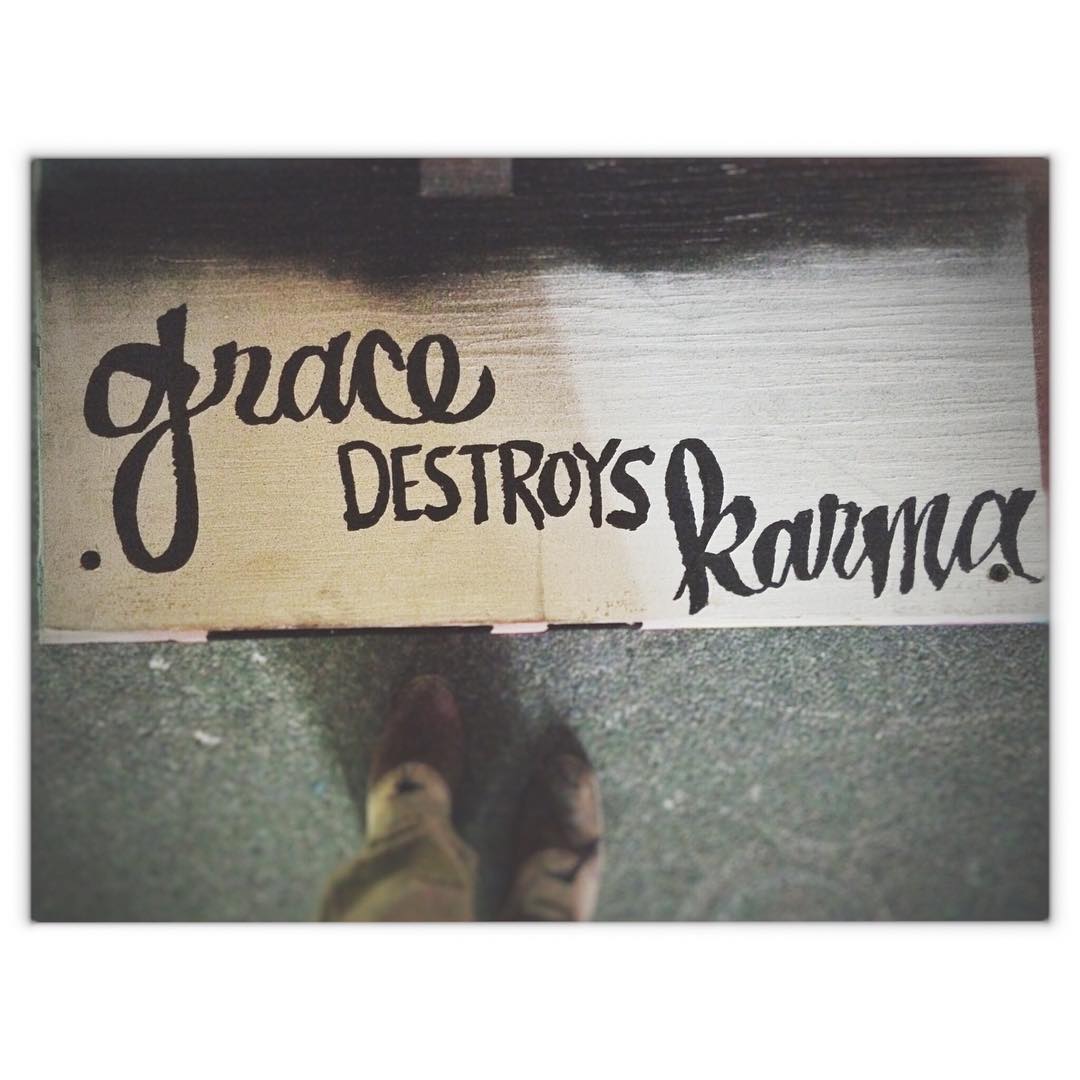 grace
DESTROYS
karma